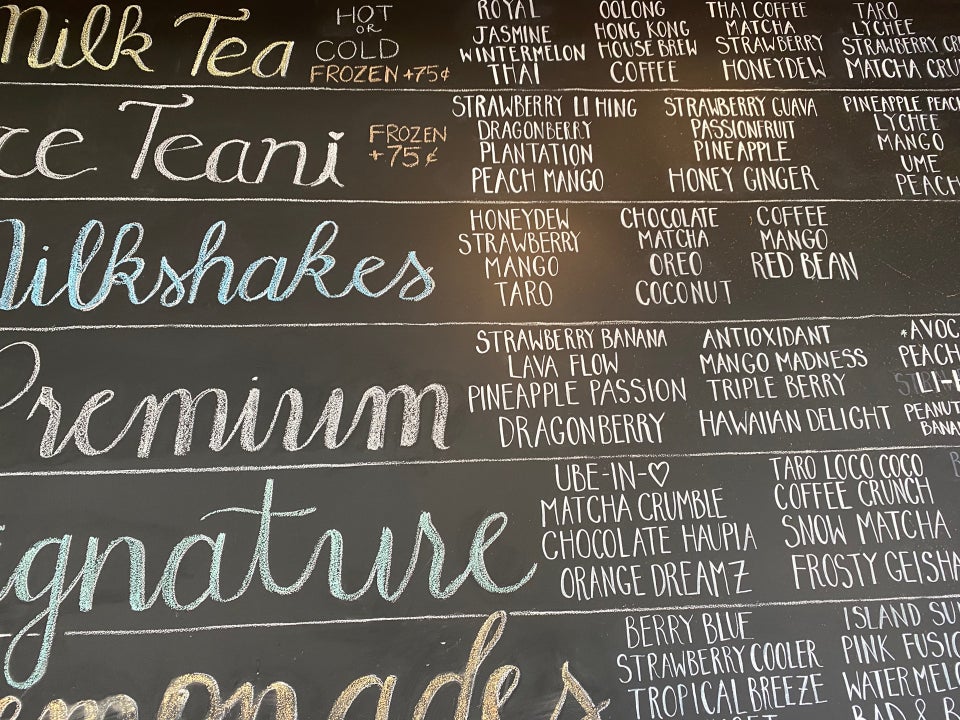 Milk Tea
HOT
OR
COLD
FROZEN +75¢
ROYAL
JASMINE
WINTERMELON
THAI
OOLONG
HONG KONG
HOUSE BREW
COFFEE
THAI COFFEE
MATCHA
STRAWBERRY
HONEYDEW
TARO
LYCHEE
STRAWBERRY CR
MATCHA CRU
ce Teani
FROZEN
+75¢
STRAWBERRY LI HING
DRAGONBERRY
PLANTATION
PEACH MANGO
STRAWBERRY GUAVA
PASSIONFRUIT
PINEAPPLE
HONEY GINGER
PINEAPPLE PEACH
LYCHEE
MANGO
UME
PEACH
Milkshakes
HONEYDEW
STRAWBERRY
MANGO
TARO
CHOCOLATE
MATCHA
OREO
COCONUT
COFFEE
MANGO
RED BEAN
Premium
STRAWBERRY BANANA
LAVA FLOW
PINEAPPLE PASSION
DRAGONBERRY
ANTIOXIDANT
MANGO MADNESS
TRIPLE BERRY
HAWAIIAN DELIGHT
*AVOC
PEACH
PEANUT
BANA
ignature
UBE-IN-♡
MATCHA CRUMBLE
CHOCOLATE HAUPIA
ORANGE DREAMZ
TARO LOCO COCO
COFFEE CRUNCH
SNOW MATCHA
FROSTY GEISHA
emonades
BERRY BLUE
STRAWBERRY COOLER
TROPICAL BREEZE
ISLAND SU
PINK FUSIO
WATERMELO
BAD & B